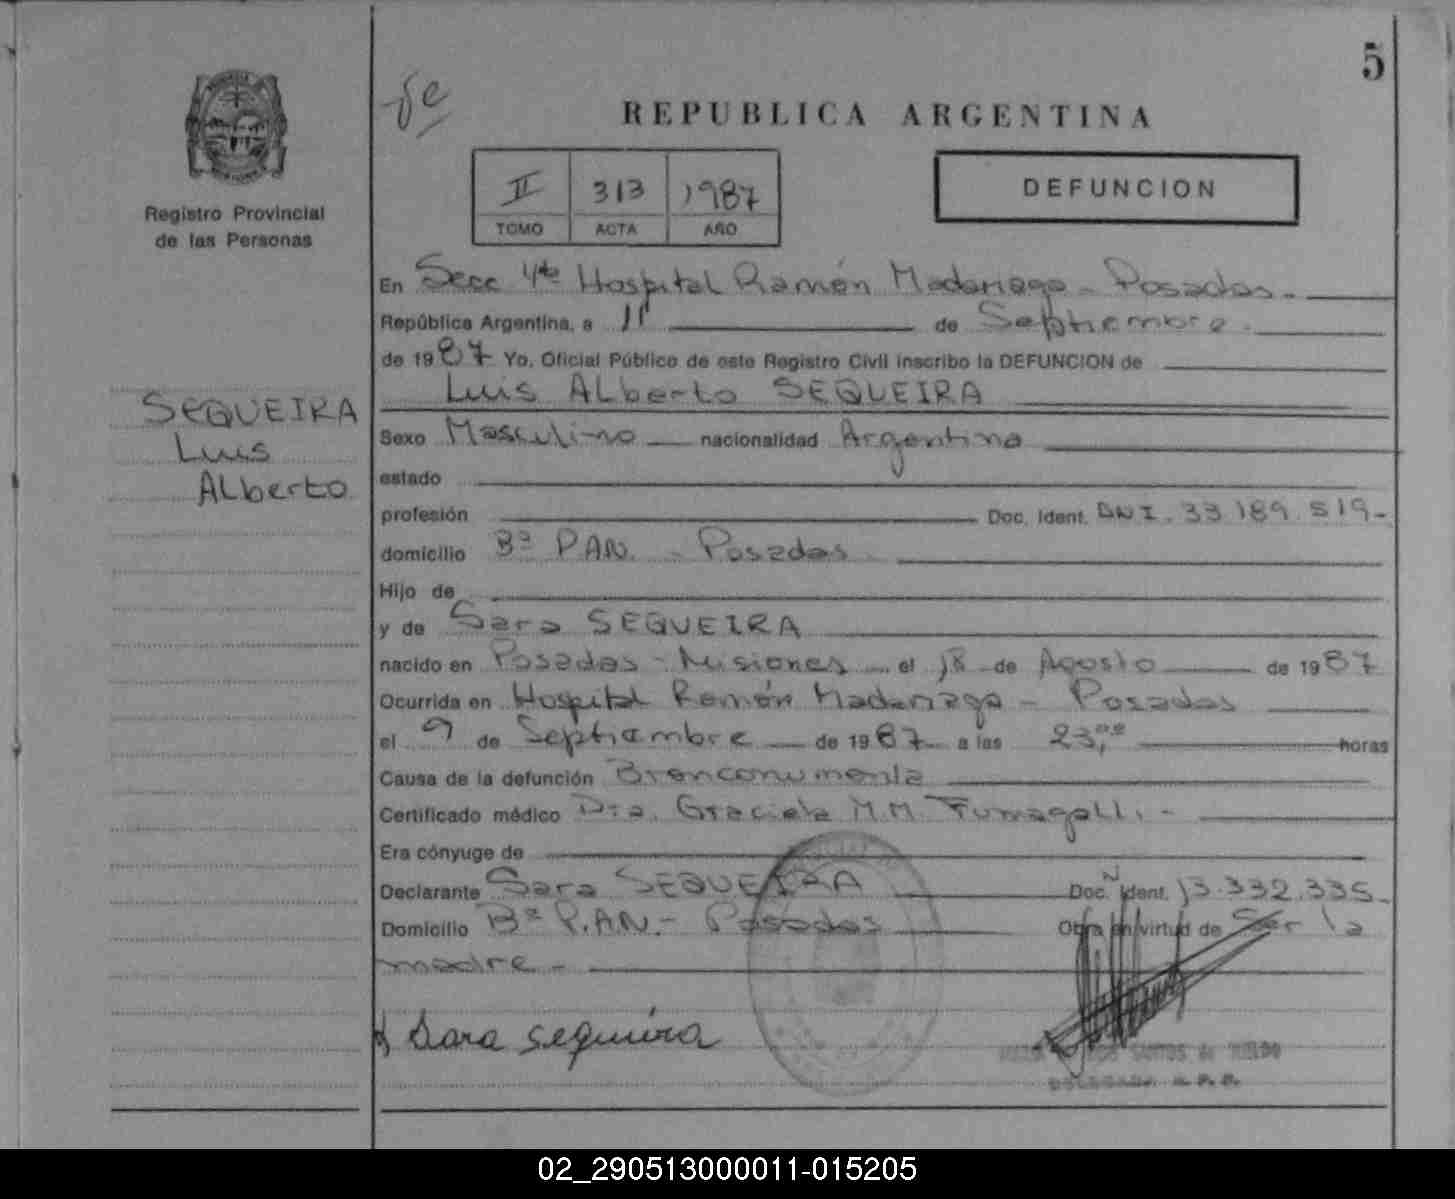 5
REPUBLICA ARGENTINA
II 313 1987
TOMO ACTA AÑO
DEFUNCION
Registro Provincial
de las Personas
SEQUEIRA
Luis
ALberto
En Secc 4ta Hospital Ramón Madariaga - Posadas.
República Argentina, a 11 de Septiembre.
de 1987 Yo, Oficial Público de este Registro Civil inscribo la DEFUNCION de
Luis ALberto SEQUEIRA
Sexo Masculino nacionalidad Argentina
estado
profesión Doc. Ident. DNI. 33.189.519-
domicilio Bº PAN. - Posadas
Hijo de
y de Sara SEQUEIRA
nacido en Posadas - Misiones el 18 de Agosto de 1987
Ocurrida en Hospital Ramón Madariaga - Posadas
el 9 de Septiembre de 1987 a las 23,00 horas
Causa de la defunción Bronconumonia
Certificado médico Dra. Graciela M.M. Fumagalli.-
Era cónyuge de
Declarante Sara SEQUEIRA Doc. Ident. 13.332.335-
Domicilio Bº P.AN.- Posadas Obra en virtud de Ser la
madre -
Sara sequeira
SANTOS de
DELEGADA R.P.P.
02_290513000011-015205